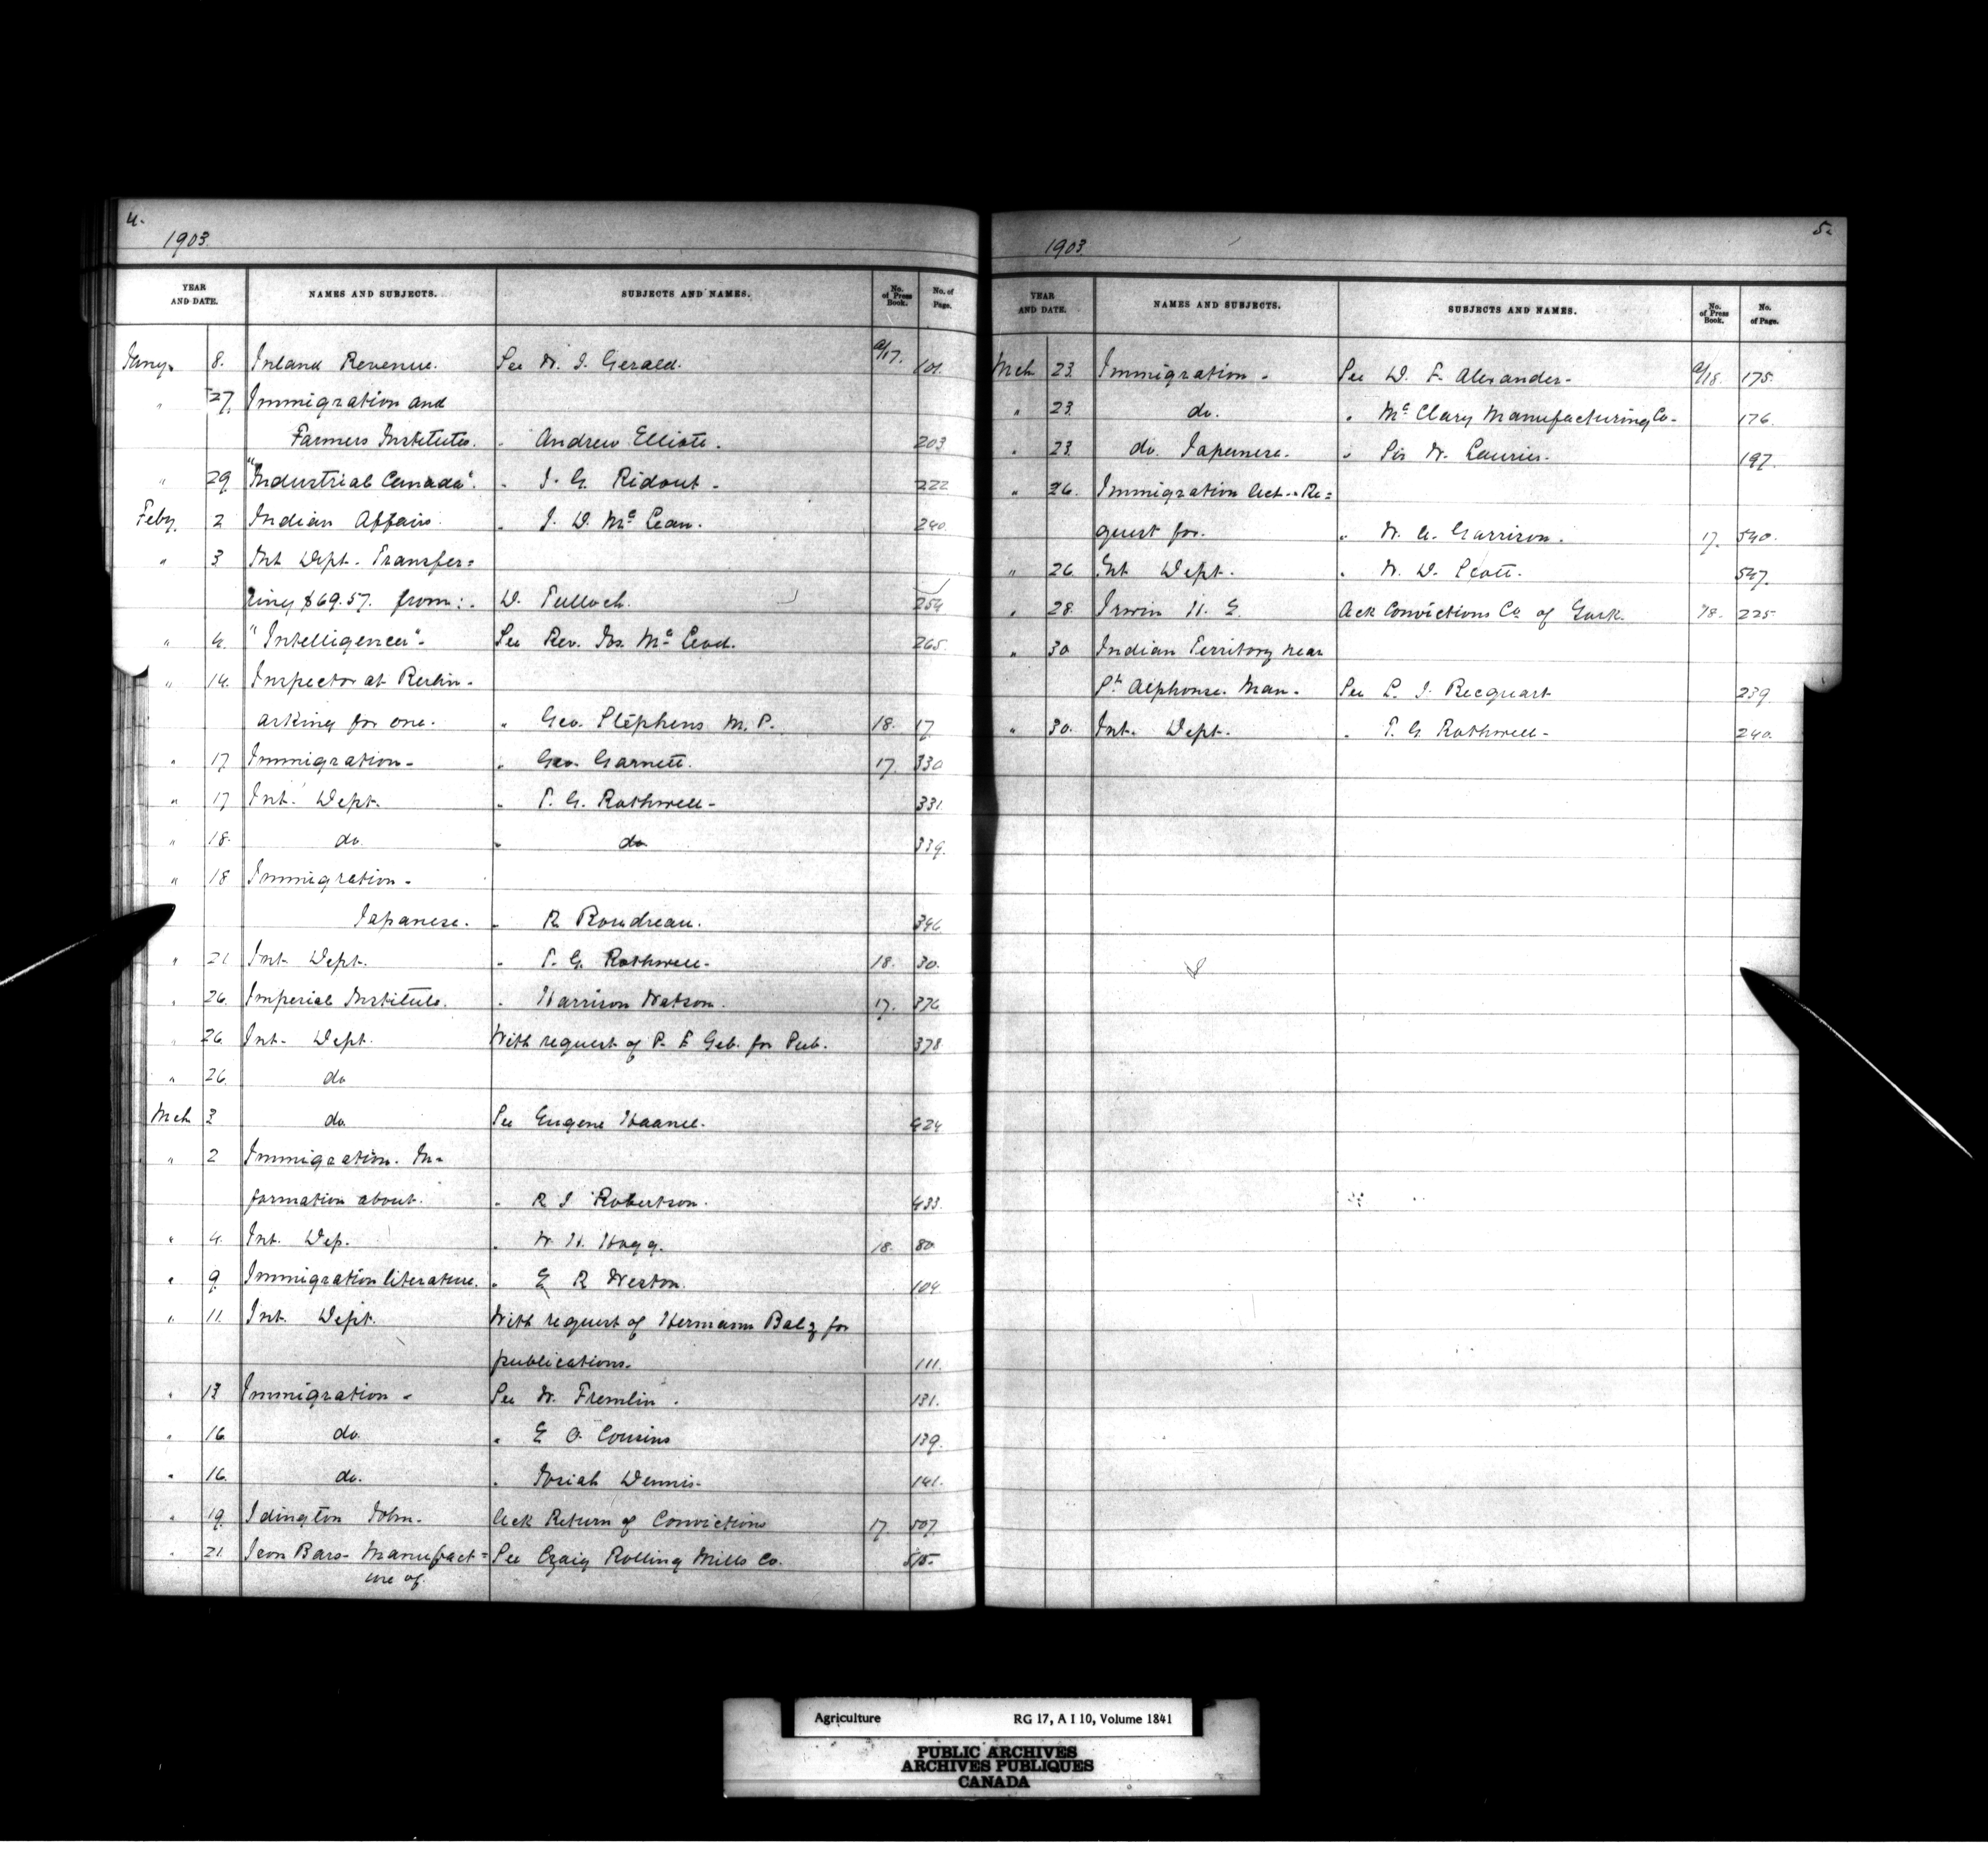 4.
1903.
YEAR AND DATE. NAMES AND SUBJECTS. SUBJECTS AND NAMES. No. of Press Book. No. of Page.
Jany. 8. Inland Revenue. See W. J. Gerald. a/17. 101.
" 27. Immigration and
Farmers Institutes. " Andrew Elliott. 203
" 29 "Industrial Canada". " J. G. Ridout - 222
Feby. 2 Indian Affairs. " J. D. McLean. 240.
" 3 Int Dept. Transfer=
ring $69.57. from:. D. Tulloch. 254
" 4. "Intelligencer". See Rev. Jos. McLeod. 265.
" 14. Inspector at Berlin -
asking for one. " Geo. Stephens M. P. 18. 17.
" 17 Immigration - " Geo. Garnett. 17. 330
" 17 Int. Dept. " P. G. Rothwell - 331.
" 18. do. " do 339.
" 18 Immigration -
Japanese. " R. Boudreau. 346
" 21 Int. Dept. " P. G. Rothwell - 18. 30.
" 26. Imperial Institute. " Harrison Watson. 17. 376
" 26. Int. Dept. With request of P. E Geb. for Pub. 378.
" 26 do
Mch 3 do. See Eugene Haanel. 424
" 2 Immigration. In=
formation about. " R J Robertson. 433.
" 4. Int. Dep. " W. H. Hogg. 18. 80
" 9. Immigration literature. " E R Weston. 104
" 11. Int. Dept. With request of Hermann Balz for
publications. 111.
" 13 Immigration - See W. Fremlin. 131.
" 16 do. " E O. Cousins 139.
" 16. do. " Josiah Dennis. 141.
" 19. Idington John. Ack Return of Convictions 17 507
" 21. Iron Bars - Manufact= See Craig Rolling Mills Co. 515.
ure of.
5.
1903
YEAR AND DATE. NAMES AND SUBJECTS. SUBJECTS AND NAMES. No. of Press Book. No. of Page.
Mch 23. Immigration - See D. F. Alexander - a/18. 175.
" 23. do. " McClary Manufacturing Co - 176.
" 23. do. Japanese. " Sir W. Laurier. 197.
" 26. Immigration Act - Re=
quest for. " W. A. Garrison. 17. 540.
" 26. Int Dept. " W. D. Scott. 547.
" 28. Irwin H. E. Ack Convictions Co. of York. 18. 225
" 30 Indian Territory near
St. Alphonse. Man. See L. J. Recquart 239.
" 30. Int. Dept. " P. G. Rothwell - 240.
Agriculture RG 17, A I 10, Volume 1841
PUBLIC ARCHIVES
ARCHIVES PUBLIQUES
CANADA